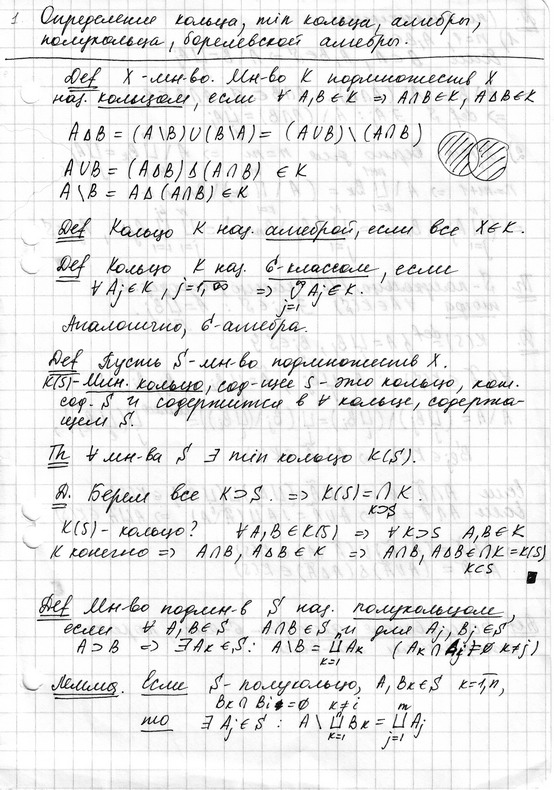 1 Определение кольца, min кольца, алгебры,
полукольца, борелевской алгебры.
Def X - мн-во. Мн-во K подмножеств X
наз. кольцом, если ∀ A,B∈K ⇒ A∩B∈K, A∆B∈K
A∆B = (A\B)∪(B\A) = (A∪B)\(A∩B)
A∪B = (A∆B)∆(A∩B) ∈ K
A\B = A∆(A∩B) ∈ K
Def Кольцо K наз. алгеброй, если все X∈K.
Def Кольцо K наз. σ-классом, если
∀ Aj∈K, j=1,∞ ⇒ ∪ Aj∈K.
j=1
Аналогично, σ-алгебра.
Def Пусть S - мн-во подмножеств X.
K(S) - Мин. кольцо, сод-щее S - это кольцо, кот.
сод. S и содержится в ∀ кольце, содержа-
щем S.
Th ∀ мн-ва S ∃ min кольцо K(S).
Д. Берем все K⊃S. ⇒ K(S) = ∩ K.
K⊃S
K(S) - кольцо? ∀A,B∈K(S) ⇒ ∀K⊃S A,B∈K
K конечно ⇒ A∩B, A∆B∈K ⇒ A∩B, A∆B∈∩K=K(S)
K⊂S
Def Мн-во подмн-в S наз. полукольцом,
если ∀ A,B∈S A∩B∈S и для Aj, Bj∈S
A⊃B ⇒ ∃Ak∈S: A\B = ⊔ Ak (Ak∩Aj=∅ k≠j)
k=1
Лемма. Если S - полукольцо, A,Bk∈S k=1,n,
Bk∩Bi=∅ k≠i
то ∃ Aj∈S : A\⊔Bk = ⊔Aj
k=1 j=1